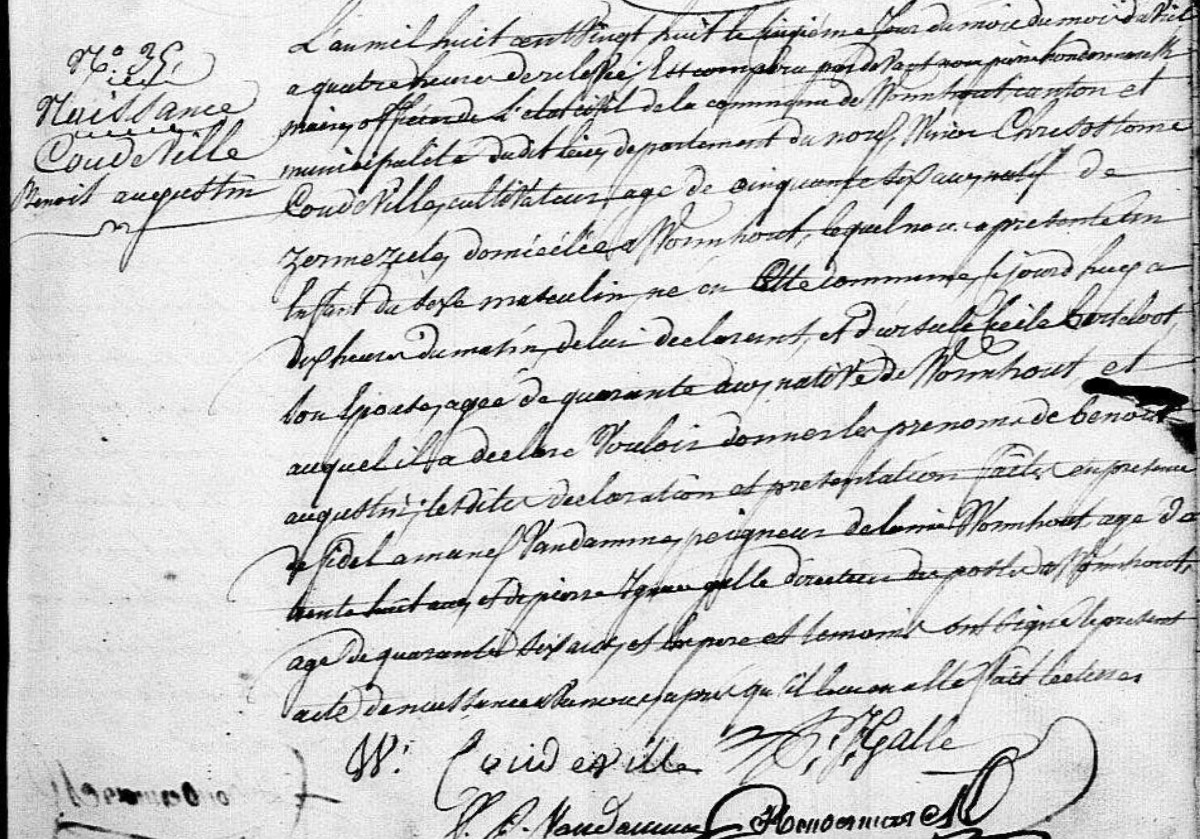 N.º 35,
Naissance
Coudeville
Benoit augustin
L'an mil huit cent Vingt huit le sixiéme Jour du mois du mois
a quatre heures de relevé, Est comparu pardevant nous pierre
maire, officier de L'etat civil de la commune de Wormhout, canton et
municipalité dudit lieu, departement du nord, Winoc Chrisostome
CoudeVille, cultivateur, agé de cinquante six ans, natif de
Zermezeele, domicilée a Wormhout, lequel nous a presenté un
Enfant du sexe masculin, né en cette commune, ce jourd'huy a
dix heures du matin, de lui declarant, et d'ursule Cecile
son Epouse, agée de quarante ans, native de Wormhout, et
auquel il a declaré Vouloir donner les prenoms de benoit
augustin; lesdites declaration et presentation faites en presence
de fidel amand Vandamme, peigneur de laine Wormhout, agé de
trente huit ans, et de pierre Ignace galle directeur des postes a Wormhout,
agé de quarante six ans, et les pere et temoins ont signé le present
acte de naissance avec nous, apres qu'il leur en a été fait lecture
W. Coudeville P. J. Galle
F. A. Vandamme